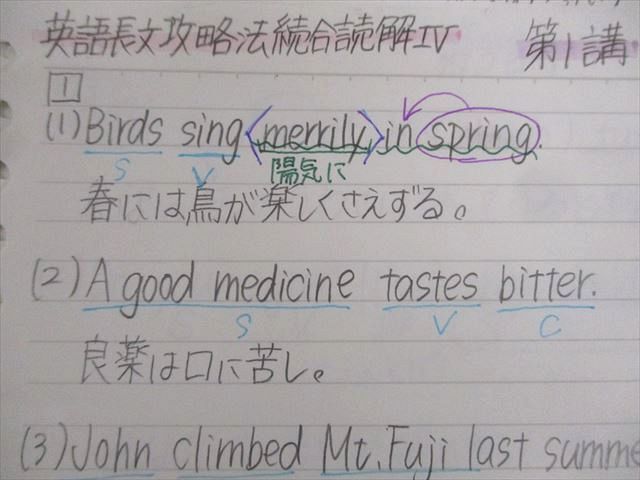 英語長文攻略法統合読解IV 第1講
1
(1) Birds sing <merrily> in spring.
S V 陽気に
春には鳥が楽しくさえずる。
(2) A good medicine tastes bitter.
S V C
良薬は口に苦し。
(3) John climbed Mt. Fuji last summe